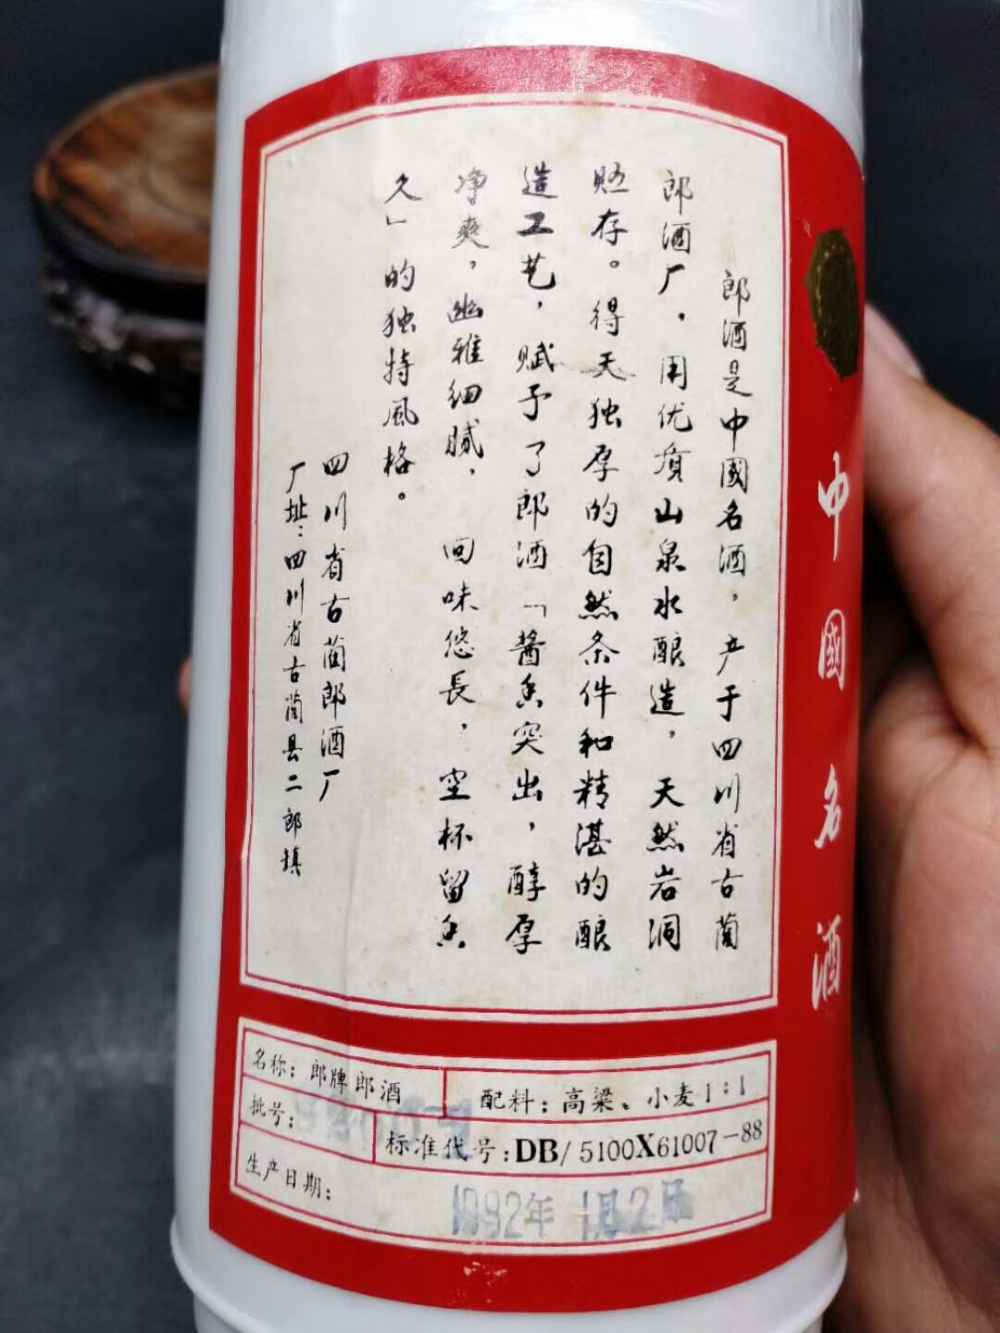 中國名酒
郎酒是中國名酒。产于四川省古藺
郎酒厂，用优质山泉水酿造，天然岩洞
贮存。得天独厚的自然条件和精湛的酿
造工艺，赋予了郎酒「酱香突出，醇厚
净爽，幽雅细腻，回味悠長，空杯留香
久」的独特風格。
四川省古藺郎酒厂
厂址：四川省古藺县二郎镇
名称：郎牌郎酒
配料：高粱、小麦1：1
批号：
标准代号：DB/5100X61007-88
生产日期：
1992年1月2日